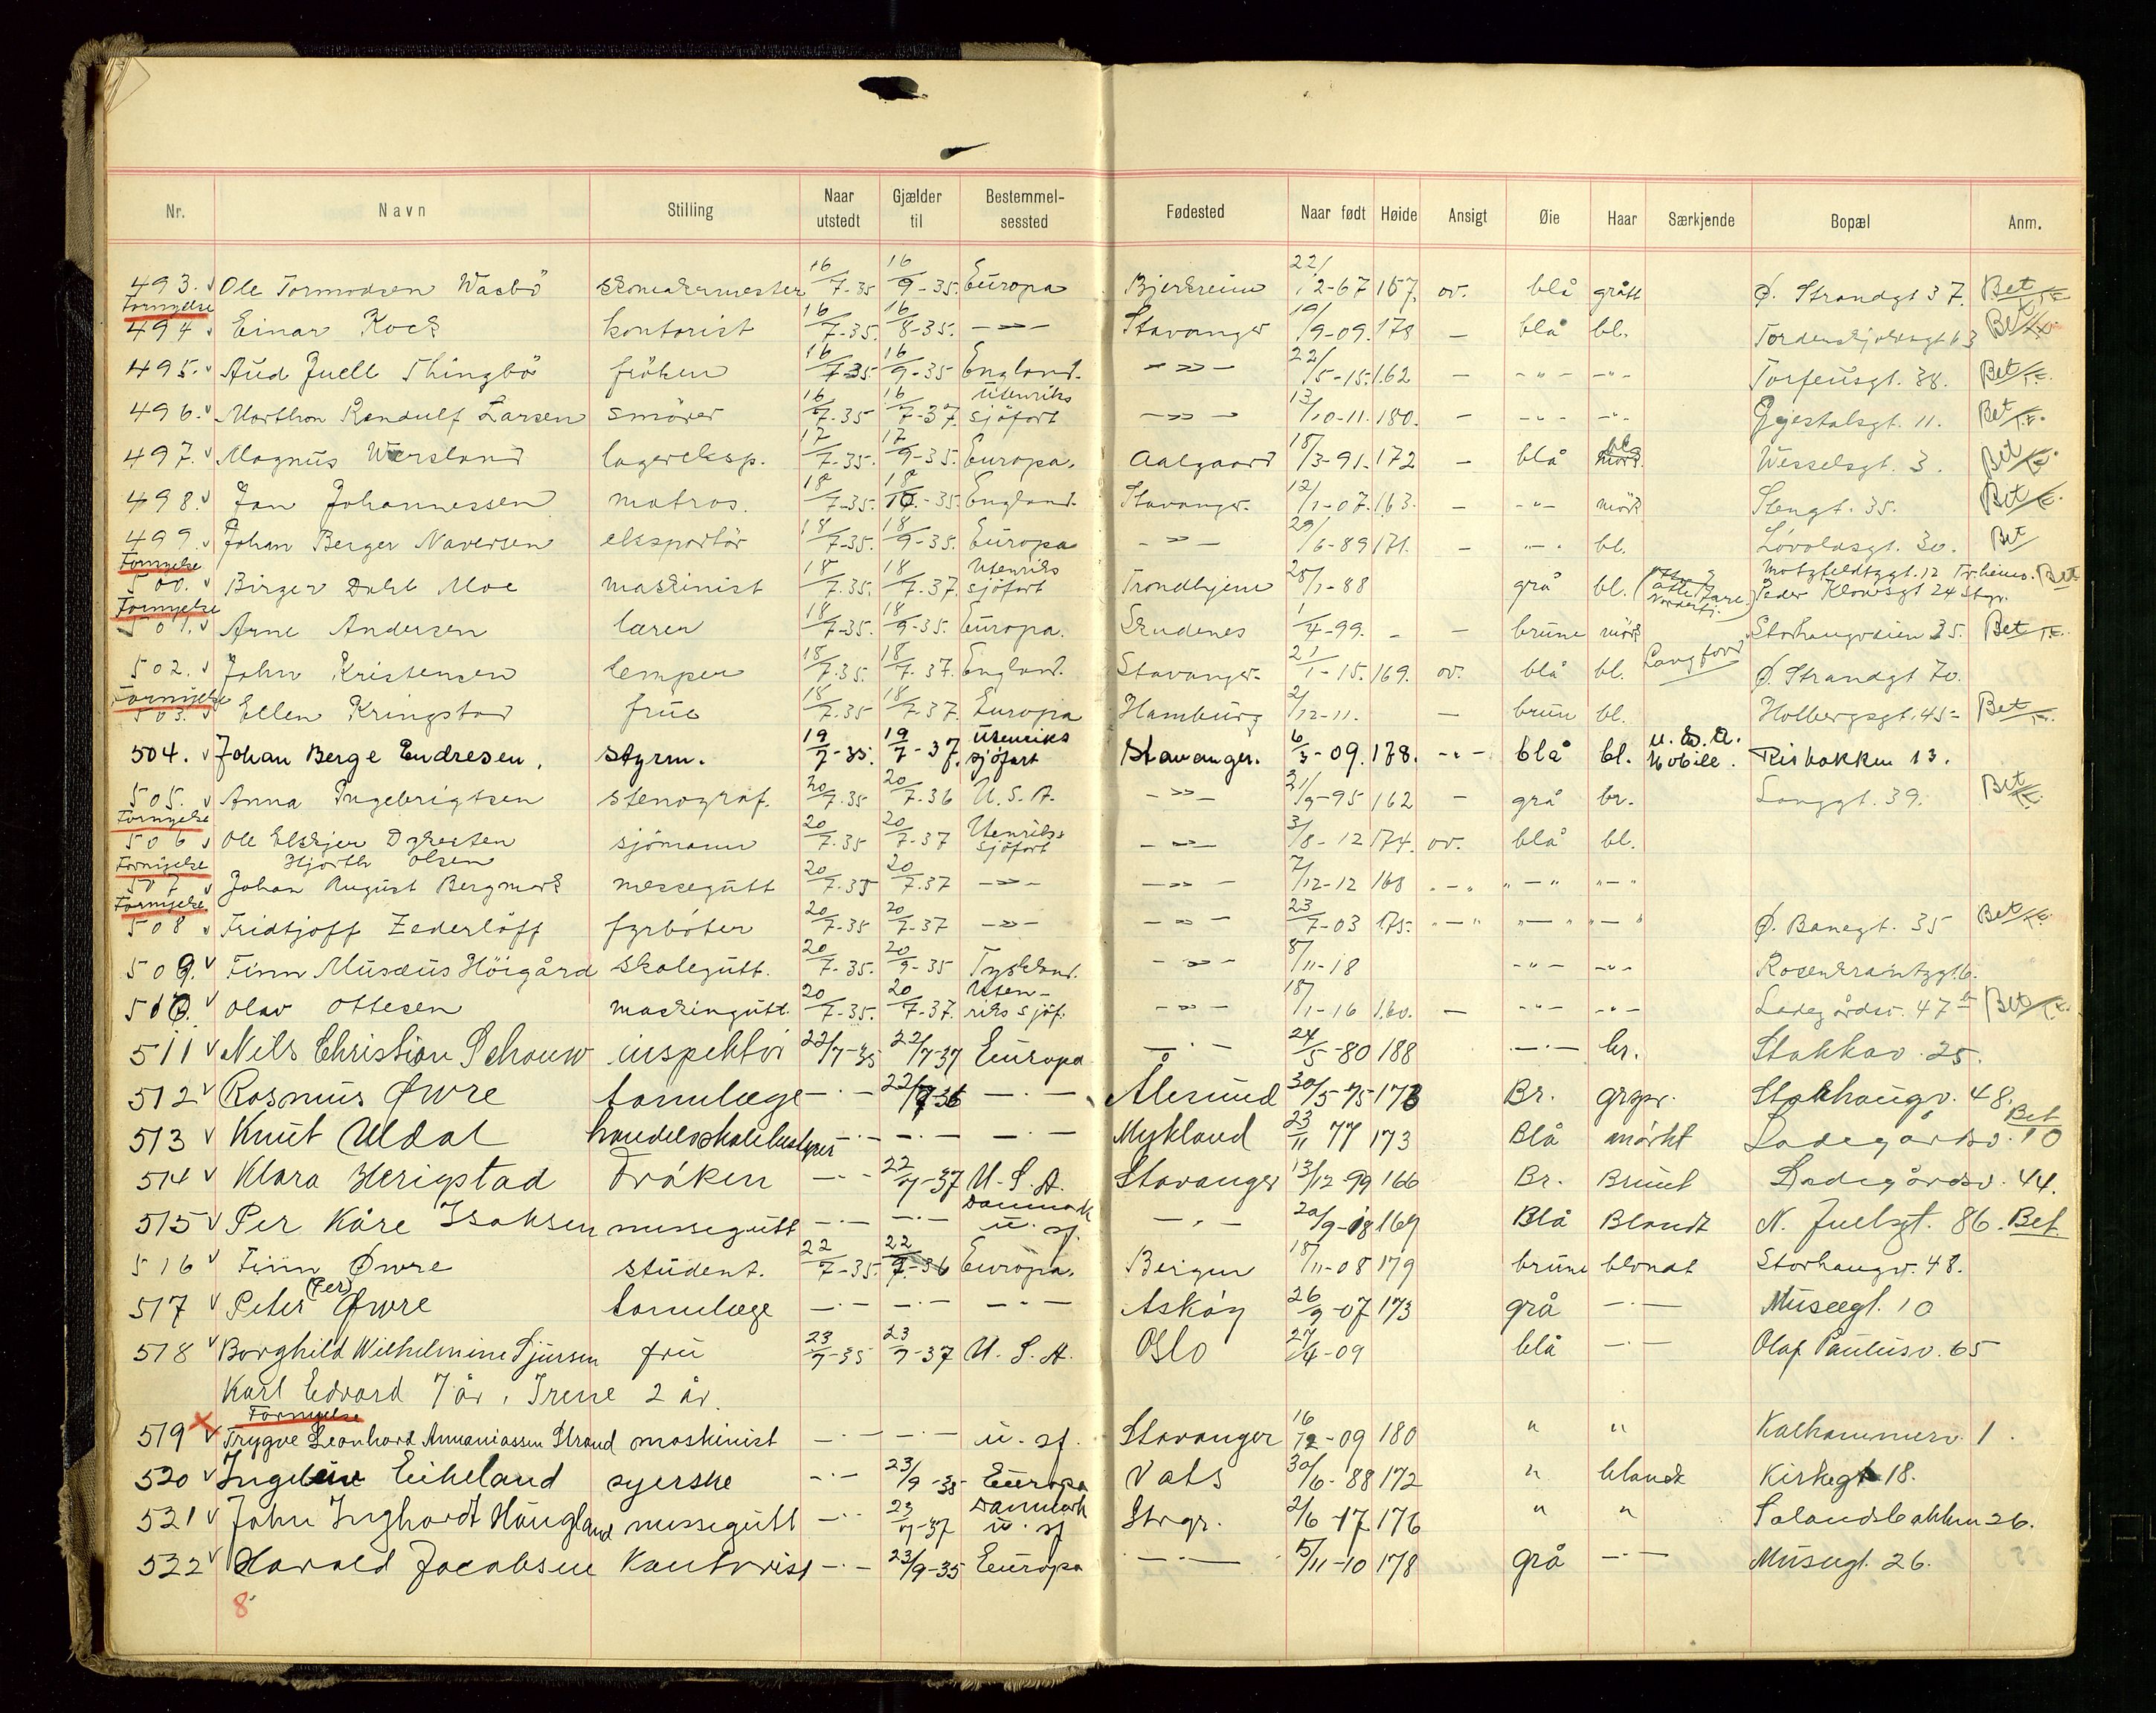 Nr. Navn Stilling Naar utstedt Gjælder til Bestemmel-sessted Fødested Naar født Høide Ansigt Øie Haar Særkjende Bopæl Anm.
493. Ole Tormodsen Wasbö skomakermester 16/7-35 16/9-35. Europa Bjerkreim 22/12-67 167. ov. blå grått Ø. Strandgt 37. Bet
Fornyelse
494 Einar Kock kontorist 16/7-35. 16/8-35. -"- Stavanger 19/9-09. 178 - blå bl. Tordenskjoldsgt 63 Bet
495. Aud Juell Thingbö fröken 16/7-35 16/9-35 England. -"- 22/5-15. 162 - -"- -"- Torfeusgt. 38. Bet
496. Marthon Randulf Larsen smörer 16/7-35 16/7-37. Utenriks sjöfart -"- 13/10-11. 180. - -"- -"- Gjestalsgt. 11. Bet
497. Magnus Wersland lagereksp. 17/7-35. 17/9-35. Europa. Aalgaard 18/3-91. 172 - blå Wesselsgt. 3. Bet
498. Jan Johannessen matros. 18/7-35. 18/10-35. England. Stavanger. 12/1-07. 163. - -"- mörk Stengt. 35. Bet
499. Johan Berger Naversen eksportör 18/7-35. 18/9-35. Europa -"- 29/6-89 171. - -"- bl. Lövoldsgt. 30. Bet
Fornyelse
500. Birger Dahl Moe maskinist 18/7.35. 18/7.37. Utenriks sjöfart Trondhjem 28/1-88 grå bl. Motzfeldtzgt. 12 Tr.heim. Peder Klowsgt 24 Stgr. Bet
Fornyelse
501. Arne Andersen lærer 18/7-35. 18/9-35. Europa. Skudenes 1/4-99. - - brune mörk Storhaugveien 35. Bet
502. John Kristensen lemper 18/7.35. 18/7.37. England. Stavanger. 21/1-15. 169. ov. blå bl. Langfart Ø. Strandgt 70.
Fornyelse
503. Ellen Kringstad frue 18/7.35 18/7.37. Europa Hamburg 2/12-11. - brun bl. Holbergsgt. 45- Bet
504. Johan Berge Endresen. styrm. 19/7-35. 19/7-37. Utenriks sjöfart Stavanger. 6/3-09. 178. -"- blå bl. U.S.A. Mobile. Risbakken 13.
505. Anna Ingebrigtsen stenograf. 20/7.35 20/7.36 U.S.A. -"- 21/9-95 162 - grå br. Langgt. 39. Bet
Fornyelse
506 Ole Elskjer Dybesten sjömann 20/7.35 20/7-37 Utenriks sjöfart -"- 3/8-12 174. ov. blå bl.
Fornyelse Hjorth Olsen
507 Johan August Bergmark messegutt 20/7.35 20/7.37 -"- -"- 7/12-12 168 -"- -"- -"-
Fornyelse.
508 Fridtjoff Zederlöff fyrböter 20/7-35 20/7-37 -"- -"- 23/7-03 175. -"- -"- -"- Ø. Banegt. 35 Bet
509. Finn Musæus Höigård skolegutt. 20/7-35. 20/9-35 Tyskland. -"- 8/11-18 -"- -"- Rosenkrantzgt. 6.
510. Olav Ottesen maskingutt. 20/7-35. 20/7-37. Uten-riks sjöf. -"- 18/1-16 160. - -"- -"- Ladegårdsv. 47 Bet
511 Nils Christian Schouw inspektör 22/7-35 22/7-37 Europa -"- 24/5-80 188 -"- br. Stokkav. 25.
512 Rasmus Øwre tannlæge -"- 22/9-36 -"- Ålesund 30/5-75 173 Br. grspr. Storhaugv. 48.
513 Knut Uldal handelsskolebestyrer -"- -"- -"- Mykland 23/11 77 173 Blå mörkt Ladegårdsv. 10 Bet
514 Klara Herigstad Fröken -"- 22/7-37 U.S.A. Stavanger 13/12 99 166 Br. Brunt Ladegårdsv. 44.
515 Per Kåre Isaksen messegutt -"- -"- Danmark u. sf. -"- 20/9-18 169 Blå Blondt N. Juelsgt. 86. Bet.
516 Finn Øwre student. 22/7-35. 22/9-36 Europa. Bergen 18/11-08 179 brune blondt Storhaugv. 48.
517 Peter (Per) Øwre tannlæge -"- -"- -"- Asköy 26/9-07 173 grå -"- Museegt. 10
518 Borghild Wilhelmine Sjursen frü 23/7-35 23/7-37 U.S.A. Oslo 27/4-09 blå -"- Olaf Paulusv. 65
Karl Edvard 7 år, Irene 2 år.
Fornyelse
519 Trygve Leonhard Annaniassen Strand maskinist -"- -"- u. sf. Stavanger 16/12-09 180 " " Kalhammerv. 1.
520 Eikeland syerske -"- 23/9-35 Europa Vats 30/6-88 172 " blondt Kirkegt 18.
521 John Inghardt Haugland messegutt -"- 23/7-37 Danmark u. sf Stvgr. 2/6-17 176 " " Solandsbakken 26.
522 Harald Jacobsen Kontorist -"- 23/9-35 Europa -"- 15/11-10 178 grå -"- Museegt. 26.
8